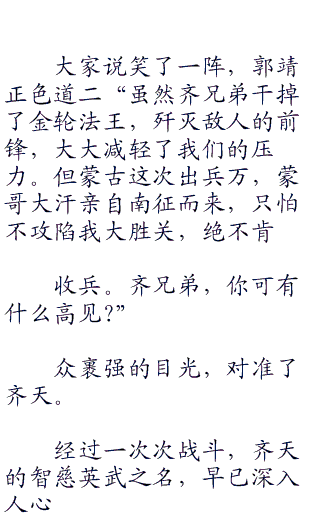 大家说笑了一阵，郭靖
正色道二“虽然齐兄弟干掉
了金轮法王，歼灭敌人的前
锋，大大减轻了我们的压
力。但蒙古这次出兵万，蒙
哥大汗亲自南征而来，只怕
不攻陷我大胜关，绝不肯
收兵。齐兄弟，你可有
什么高见?”
众襄强的目光，对准了
齐天。
经过一次次战斗，齐天
的智慈英武之名，早已深入
人心